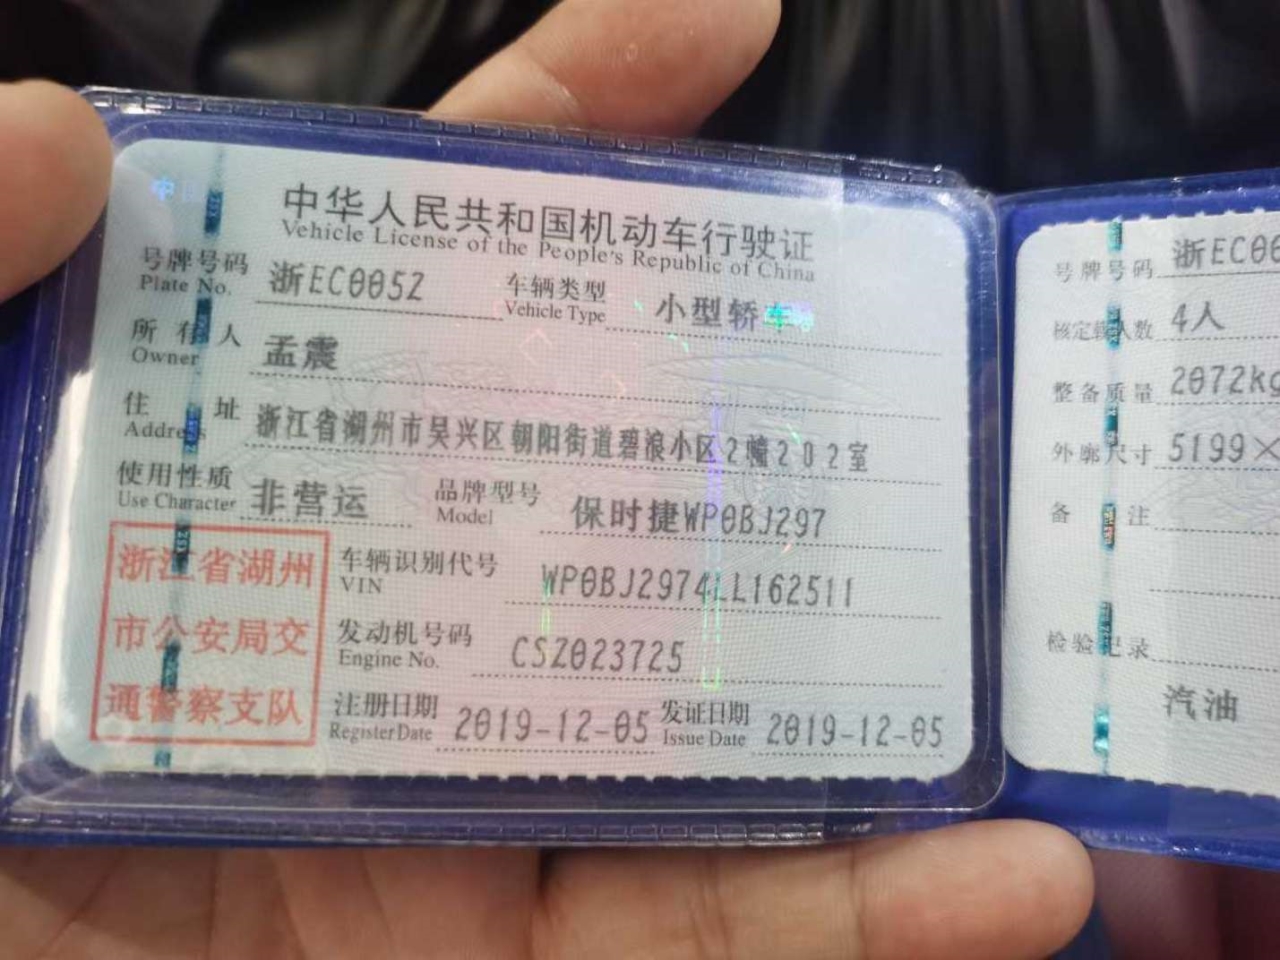 中华人民共和国机动车行驶证
Vehicle License of the People's Republic of China
号牌号码 浙EC0052 车辆类型 小型轿车
Plate No. Vehicle Type
所有人 孟震
Owner
住址 浙江省湖州市吴兴区朝阳街道碧浪小区2幢202室
Address
使用性质 非营运 品牌型号 保时捷WP0BJ297
Use Character Model
浙江省湖州
市公安局交
通警察支队
车辆识别代号 WP0BJ2974LL162511
VIN
发动机号码 CSZ023725
Engine No.
注册日期 2019-12-05 发证日期 2019-12-05
Register Date Issue Date
号牌号码 浙EC00
核定载人数 4人
整备质量 2072kg
外廓尺寸 5199×
备注
检验记录
汽油